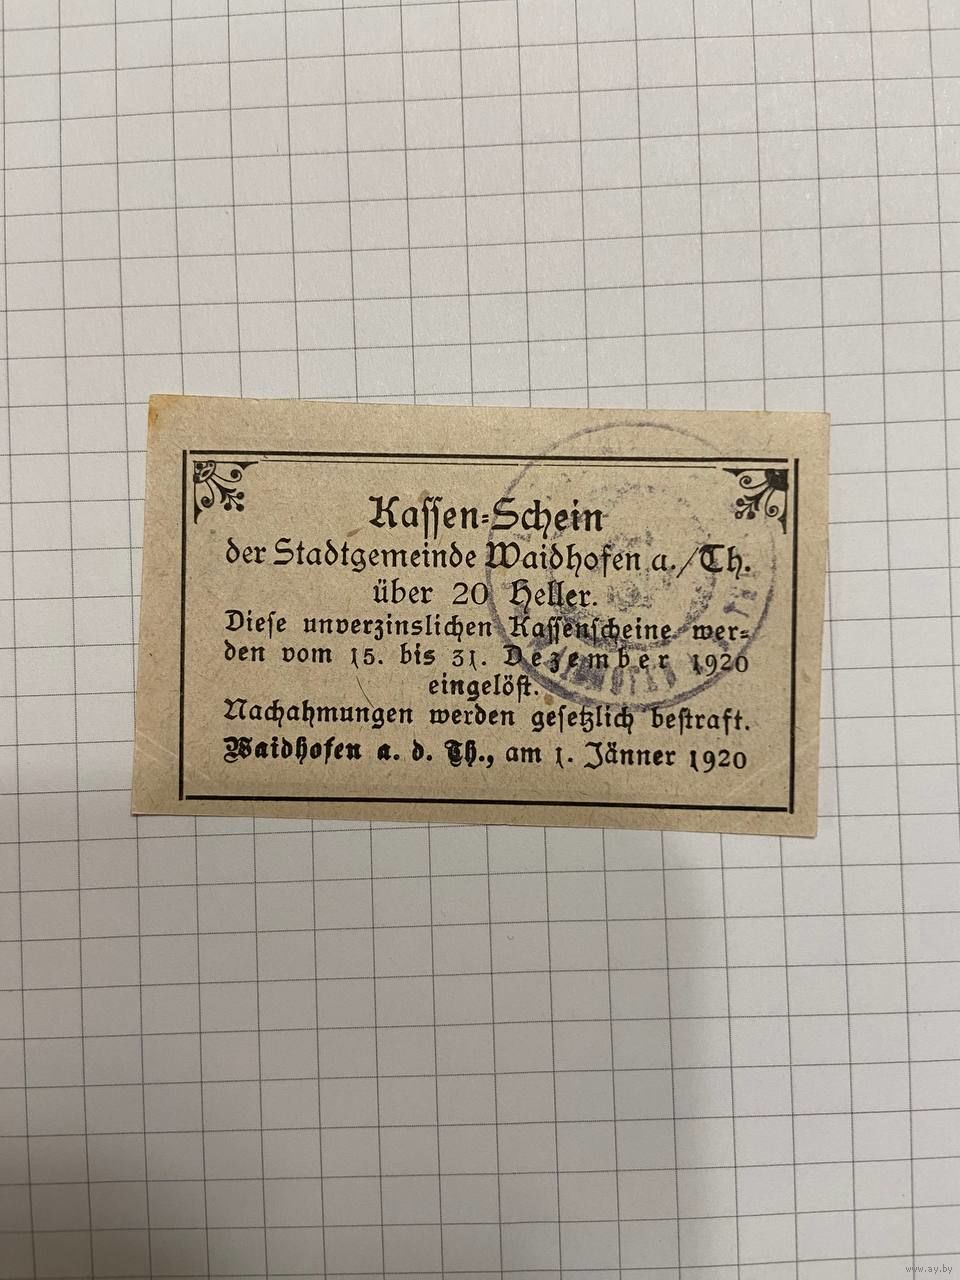 Kassen-Schein
der Stadtgemeinde Waidhofen a./Th.
über 20 Heller.
Diese unverzinslichen Kassenscheine wer-
den vom 15. bis 31. Dezember 1920
eingelöst.
Nachahmungen werden gesetzlich bestraft.
Waidhofen a. d. Th., am 1. Jänner 1920
www.ay.by